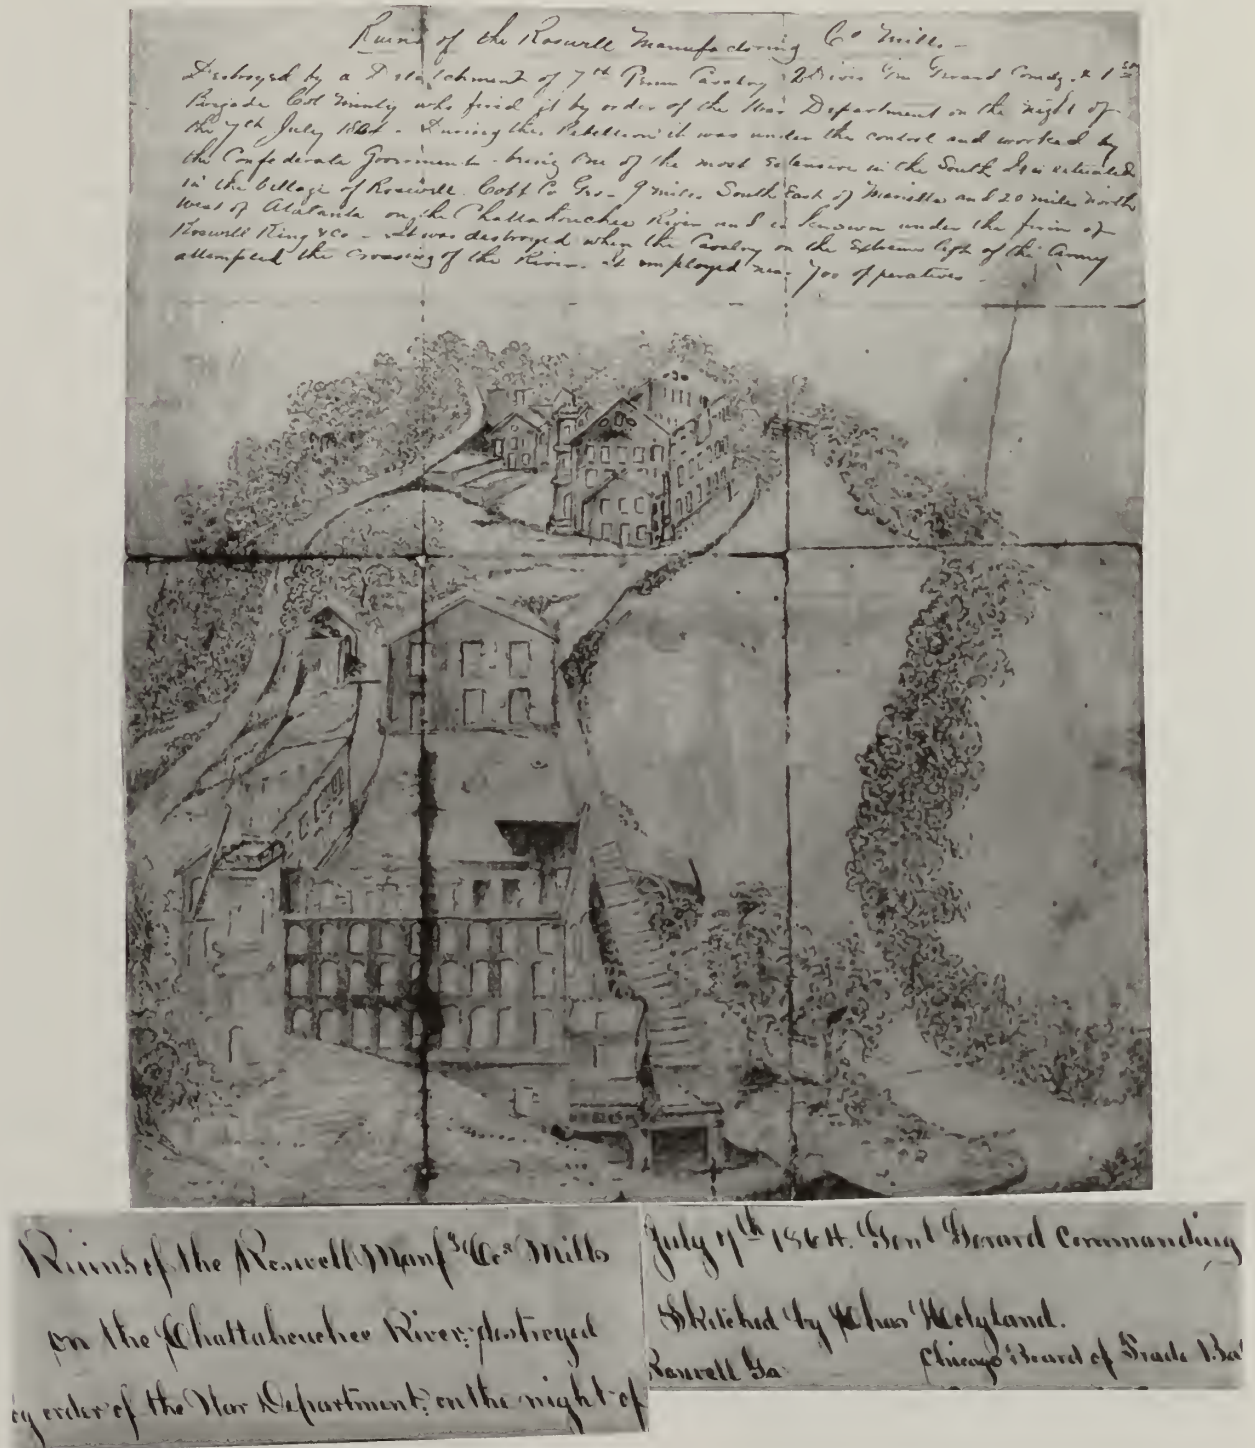 Ruins of the Roswell Manufacturing Co Mills -
Destroyed by a Detatchment of 7th Penn Cavalry 2 Divis Gen Gerard Comdg. & 1st
Brigade Col Minty who fired it by order of the War Department on the night of
the 7th July 1864 - During the Rebellion it was under the control and worked by
the Confederate Government - being one of the most Extensive in the South It is situated
in the Village of Roswell Cobb Co Geo - 9 miles South East of Marietta and 20 miles North
West of Atatanta on the Chattahouchee River and is known under the firm of
Roswell King & Co - It was destroyed when the Cavalry on the Extreme left of the Army
attempted the Crossing of the River - it employed near 700 operatives -
Ruins of the Roswell Manfg Cos Mills
on the Chattahouchee River: destroyed
by order of the War Department, on the night of
July 7th 1864. Genl Gerard commanding
Sketched by Chas Holyland.
Roswell Ga Chicago Board of Trade Bat